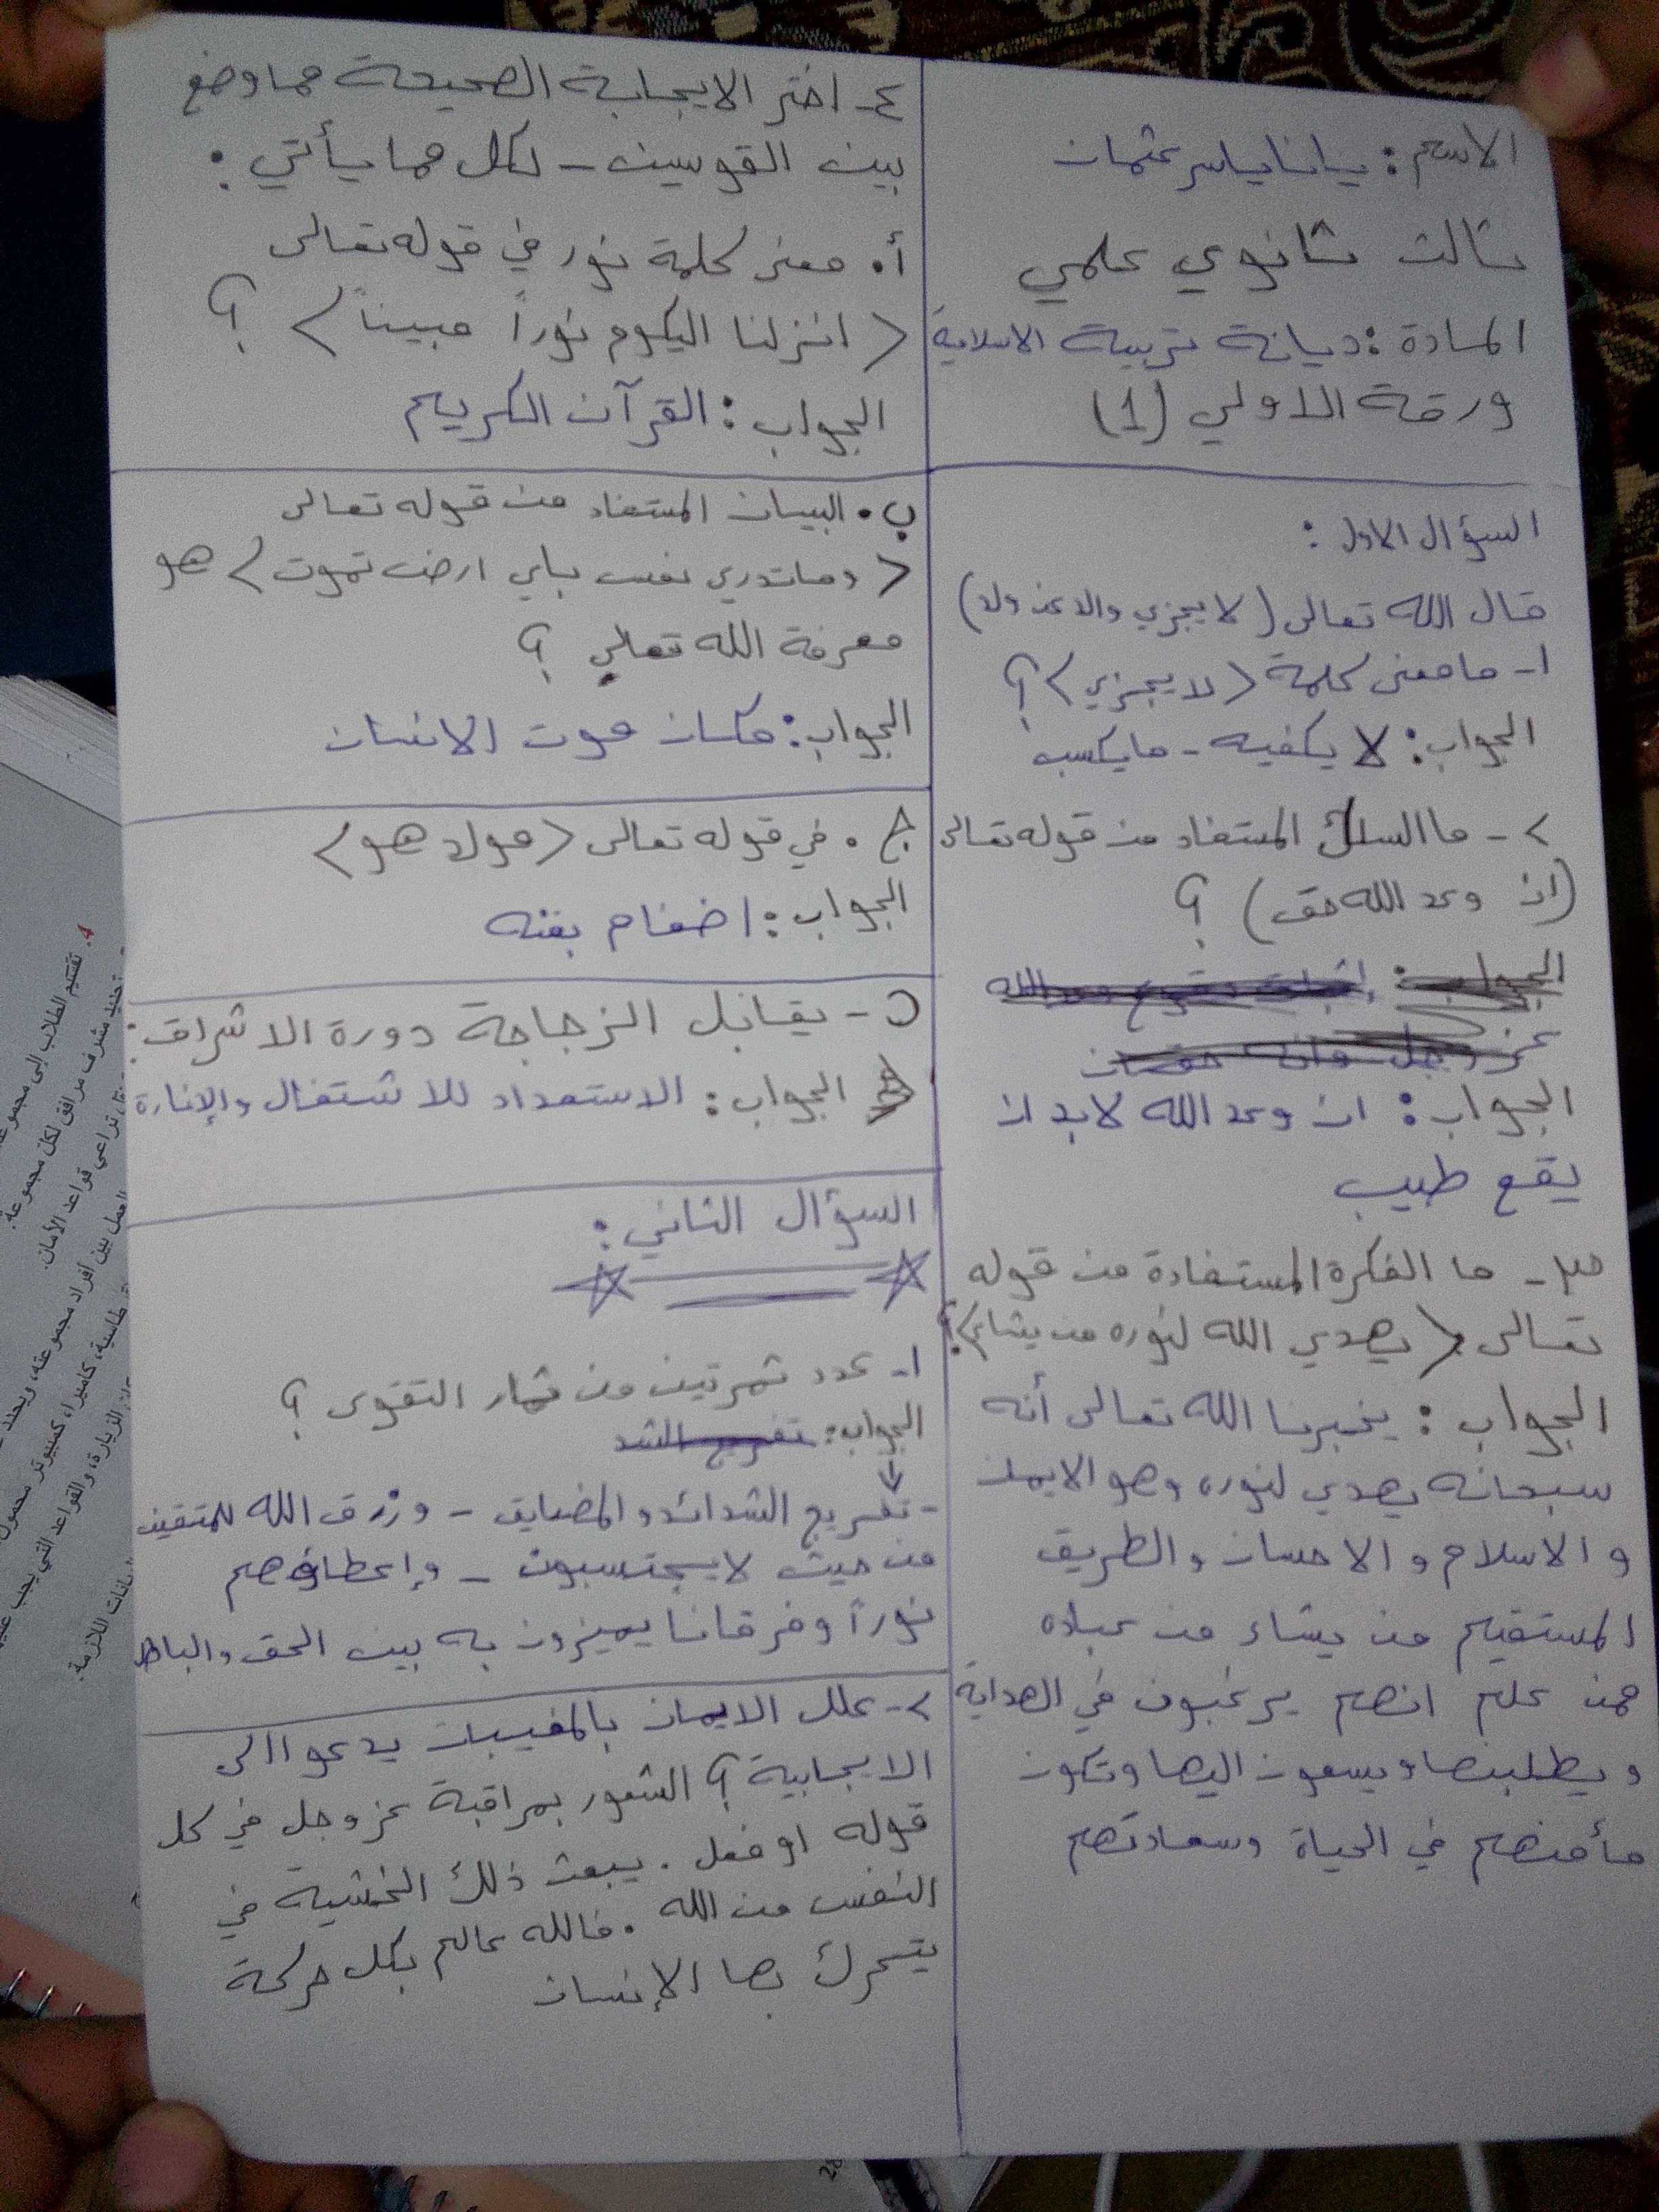 الاسم: يانا ياسر عثمان
ثالث ثانوي علمي
المادة: ديانة تربية الاسلامية
ورقة الاولى (1)
السؤال الاول:
قال الله تعالى (لا يجزي والد عن ولد)
١- ما معنى كلمة <لا يجزي>؟
الجواب: لا يكفيه - ما يكسب
٢- ما السلوك المستفاد من قوله تعالى
(ان وعد الله حق)؟
الجواب:
عز وجل
الجواب: ان وعد الله لابد ان
يقع طيب
٣- ما الفكرة المستفادة من قوله
تعالى <يهدي الله لنوره من يشاء>؟
الجواب: يخبرنا الله تعالى أنه
سبحانه يهدي لنوره وهو الايمان
و الاسلام و الاحسان والطريق
المستقيم من يشاء من عباده
ممن علم انهم يرغبون في الهداية
ويطلبنها ويسعون اليها وتكون
مأمنهم في الحياة وسعادتهم
٤- اختر الايجابة الصحيحة مما وضع
بين القوسين - لكل مما يأتي:
أ. معنى كلمة نور في قوله تعالى
<انزلنا اليكوم نوراً مبيناً>؟
الجواب: القرآن الكريم
ب. البيان المستفاد من قوله تعالى
<وما تدري نفس باي ارض تموت> هو
معرفة الله تعالى؟
الجواب: مكان موت الانسان
ج. في قوله تعالى <مولد هو>
الجواب: اضغام بغنه
د- يقابل الزجاجة دورة الاشراق:
الجواب: الاستعداد للاشتغال والإنارة
السؤال الثاني:
١- عدد ثمرتين من ثمار التقوى؟
الجواب: تفريج الشد
- تفريج الشدائد والمضايق - ورزق الله للمتقين
من حيث لا يحتسبون - وإعطاؤهم
نوراً وفرقانا يميزون به بين الحق والباطل
٢- علل الايمان بالمغيبات يدعوا الى
الايجابية؟ الشعور بمراقبة عز وجل في كل
قوله او فعل. يبعث ذلك الخشية في
النفس من الله. فالله عالم بكل حركة
يتحرك بها الإنسان
4. تقسيم الطلاب إلى مجموعات